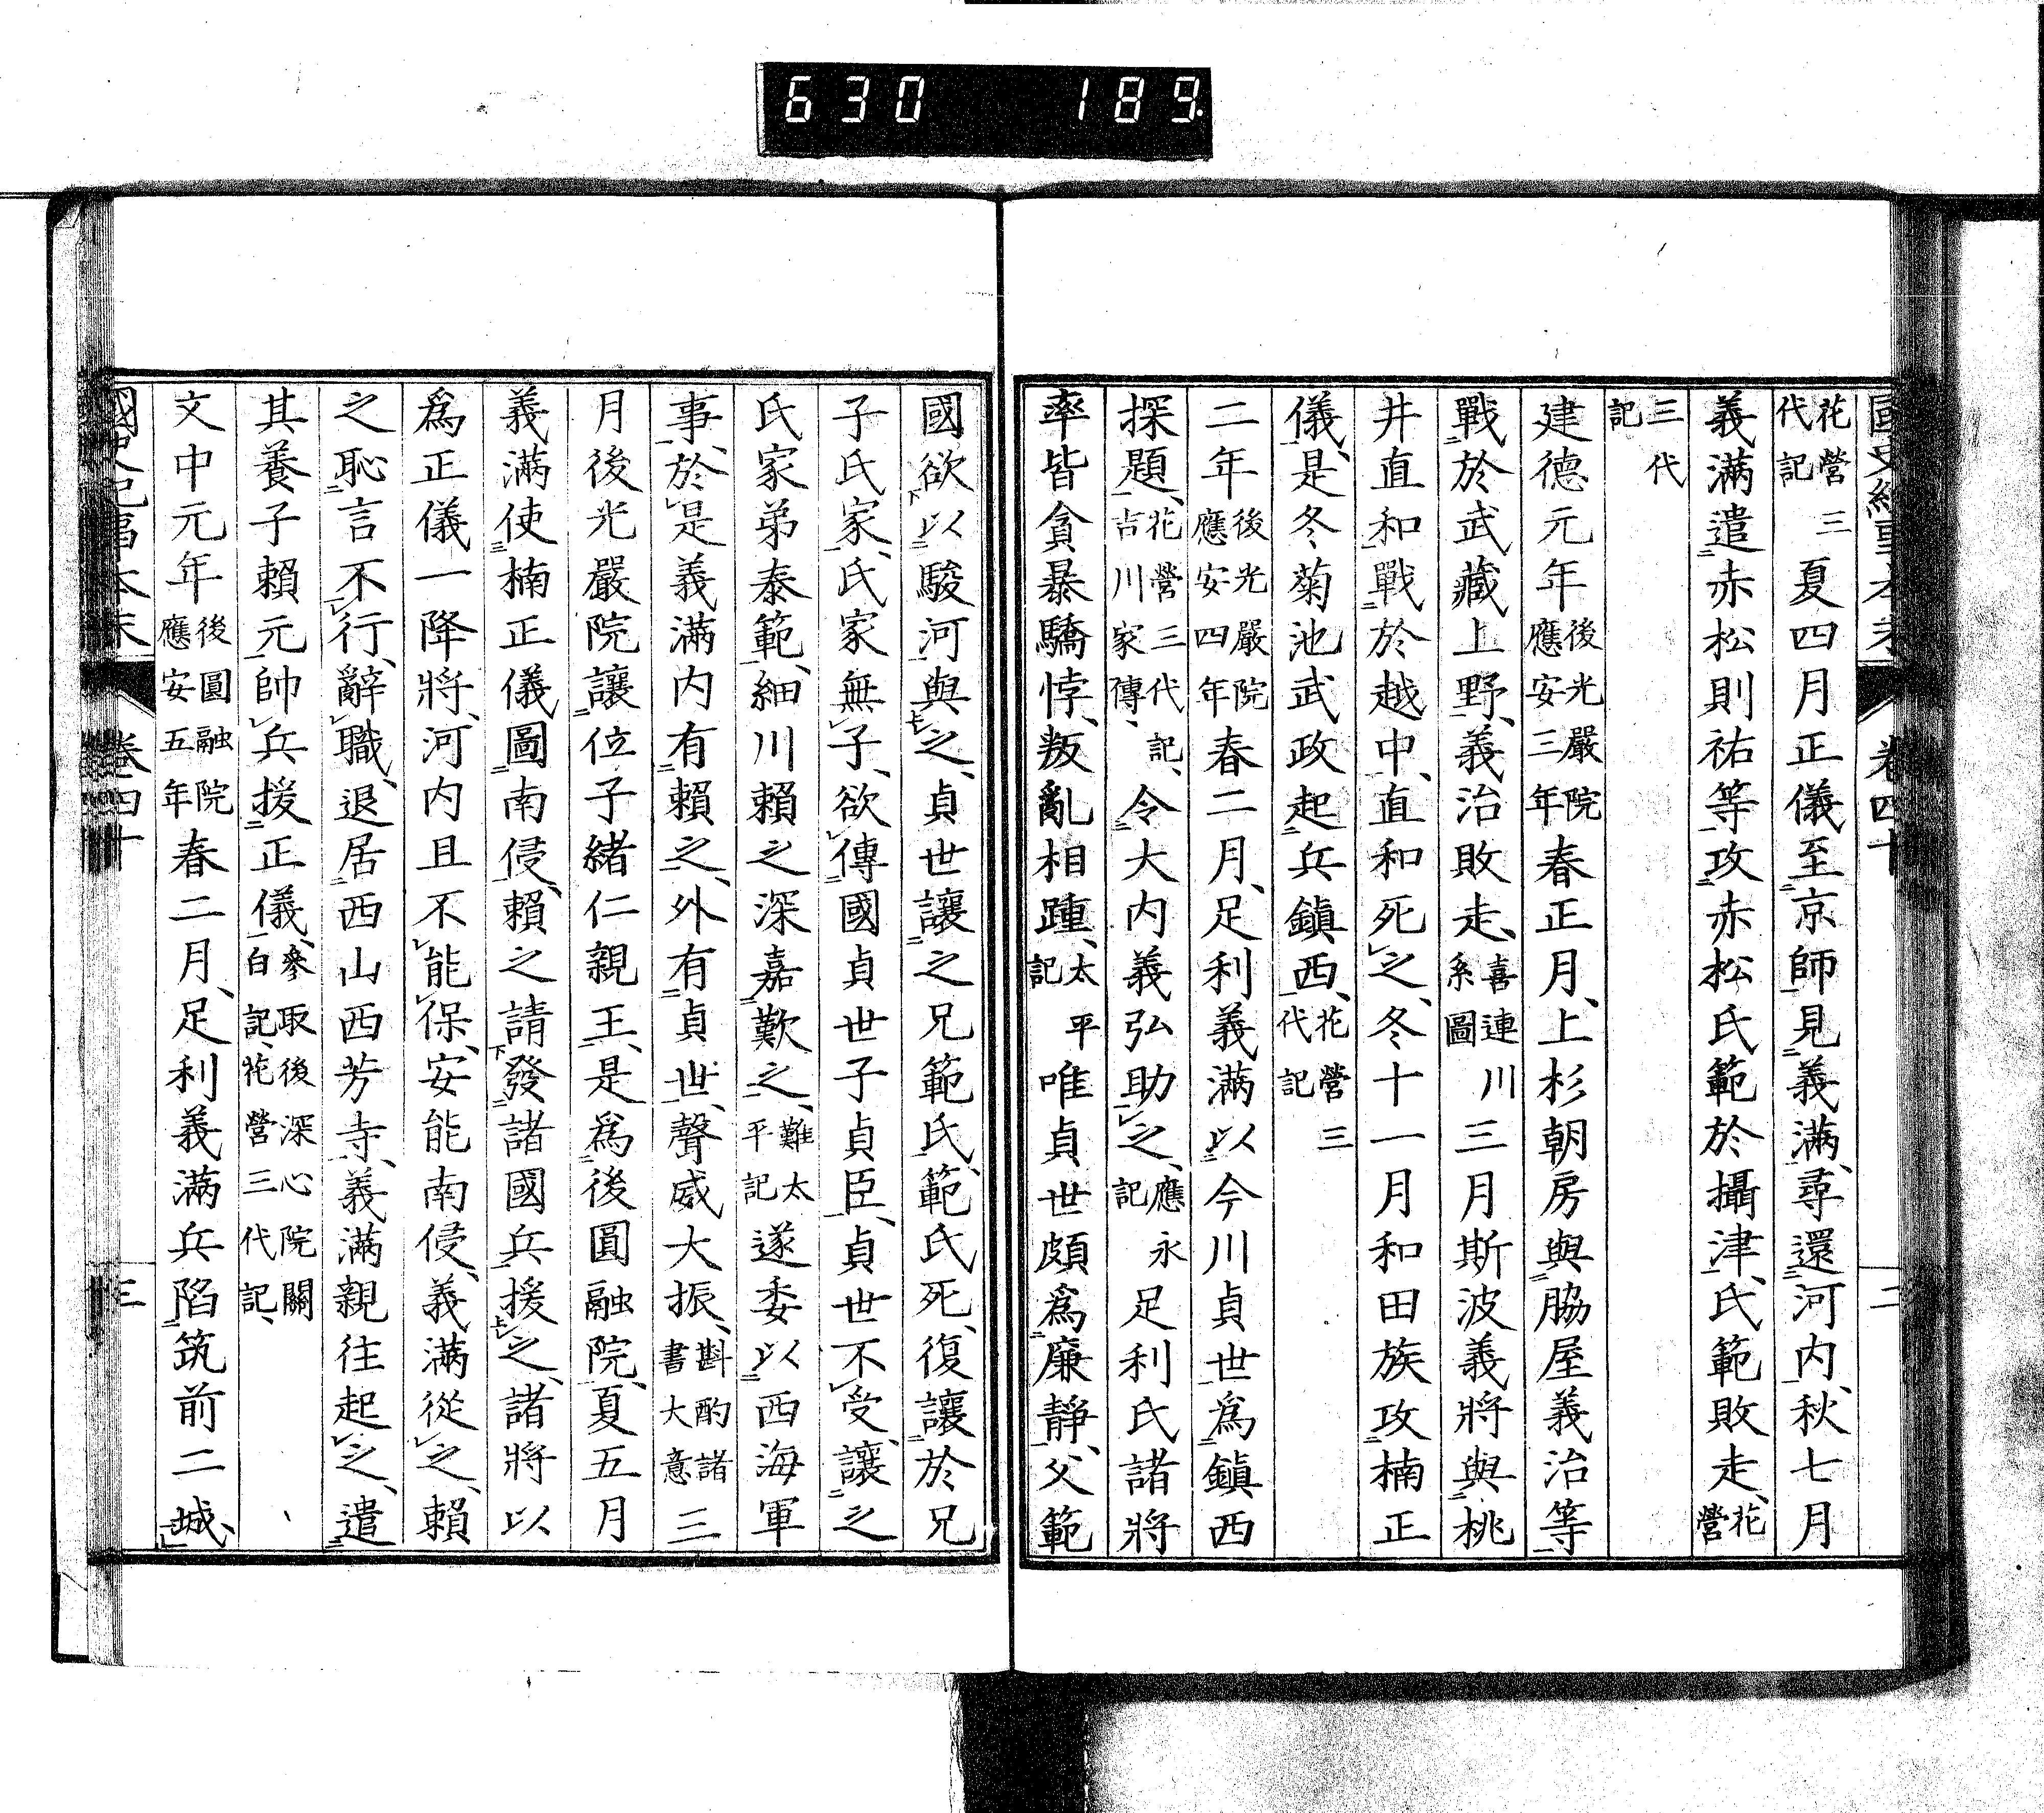 630 189
花營三代記夏四月正儀至京師見義滿、尋還河内、秋七月
義滿遣赤松則祐等攻赤松氏範於攝津、氏範敗走、花營
三代記
建德元年後光嚴院應安三年春正月、上杉朝房與脇屋義治等
戰於武藏上野、義治敗走、喜連川系圖三月斯波義將與桃
井直和戰於越中、直和死之、冬十一月和田族攻楠正
儀、是冬菊池武政起兵鎮西、花營三代記
二年後光嚴院應安四年春二月、足利義滿以今川貞世爲鎮西
探題、花營三代記、吉川家傳、令大内義弘助之、應永記足利氏諸將
率皆貪暴驕悖、叛亂相踵、太平記唯貞世頗爲廉靜、父範
卷四十
二
國欲以駿河與之、貞世讓之兄範氏、範氏死、復讓於兄
子氏家、氏家無子、欲傳國貞世子貞臣、貞世不受、讓之
氏家弟泰範、細川賴之深嘉歎之、難太平記遂委以西海軍
事、於是義滿内有賴之、外有貞世、聲威大振、斟酌諸書大意三
月後光嚴院讓位子緒仁親王、是爲後圓融院、夏五月
義滿使楠正儀圖南侵、賴之請發諸國兵援之、諸將以
爲正儀一降將、河内且不能保、安能南侵、義滿從之、賴
之恥言不行、辭職、退居西山西芳寺、義滿親往起之、遣
其養子賴元帥兵援正儀、參取後深心院關白記、花營三代記、
文中元年後圓融院應安五年春二月、足利義滿兵陷筑前二城、
國史紀事本末
卷四十
三